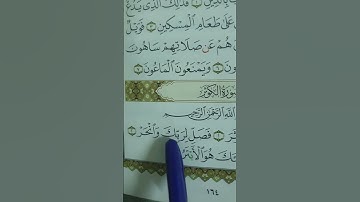 بِالدِّينِ ۝ فَذَٰلِكَ الَّذِي يَدُعُّ
عَلَىٰ طَعَامِ الْمِسْكِينِ ۝ فَوَيْلٌ
هُمْ عَن صَلَاتِهِمْ سَاهُونَ
وَيَمْنَعُونَ الْمَاعُونَ ۝
سُورَةُ الْكَوْثَرِ
اللَّهِ الرَّحْمَٰنِ الرَّحِيمِ
فَصَلِّ لِرَبِّكَ وَانْحَرْ ۝
هُوَ الْأَبْتَرُ
١٦٤